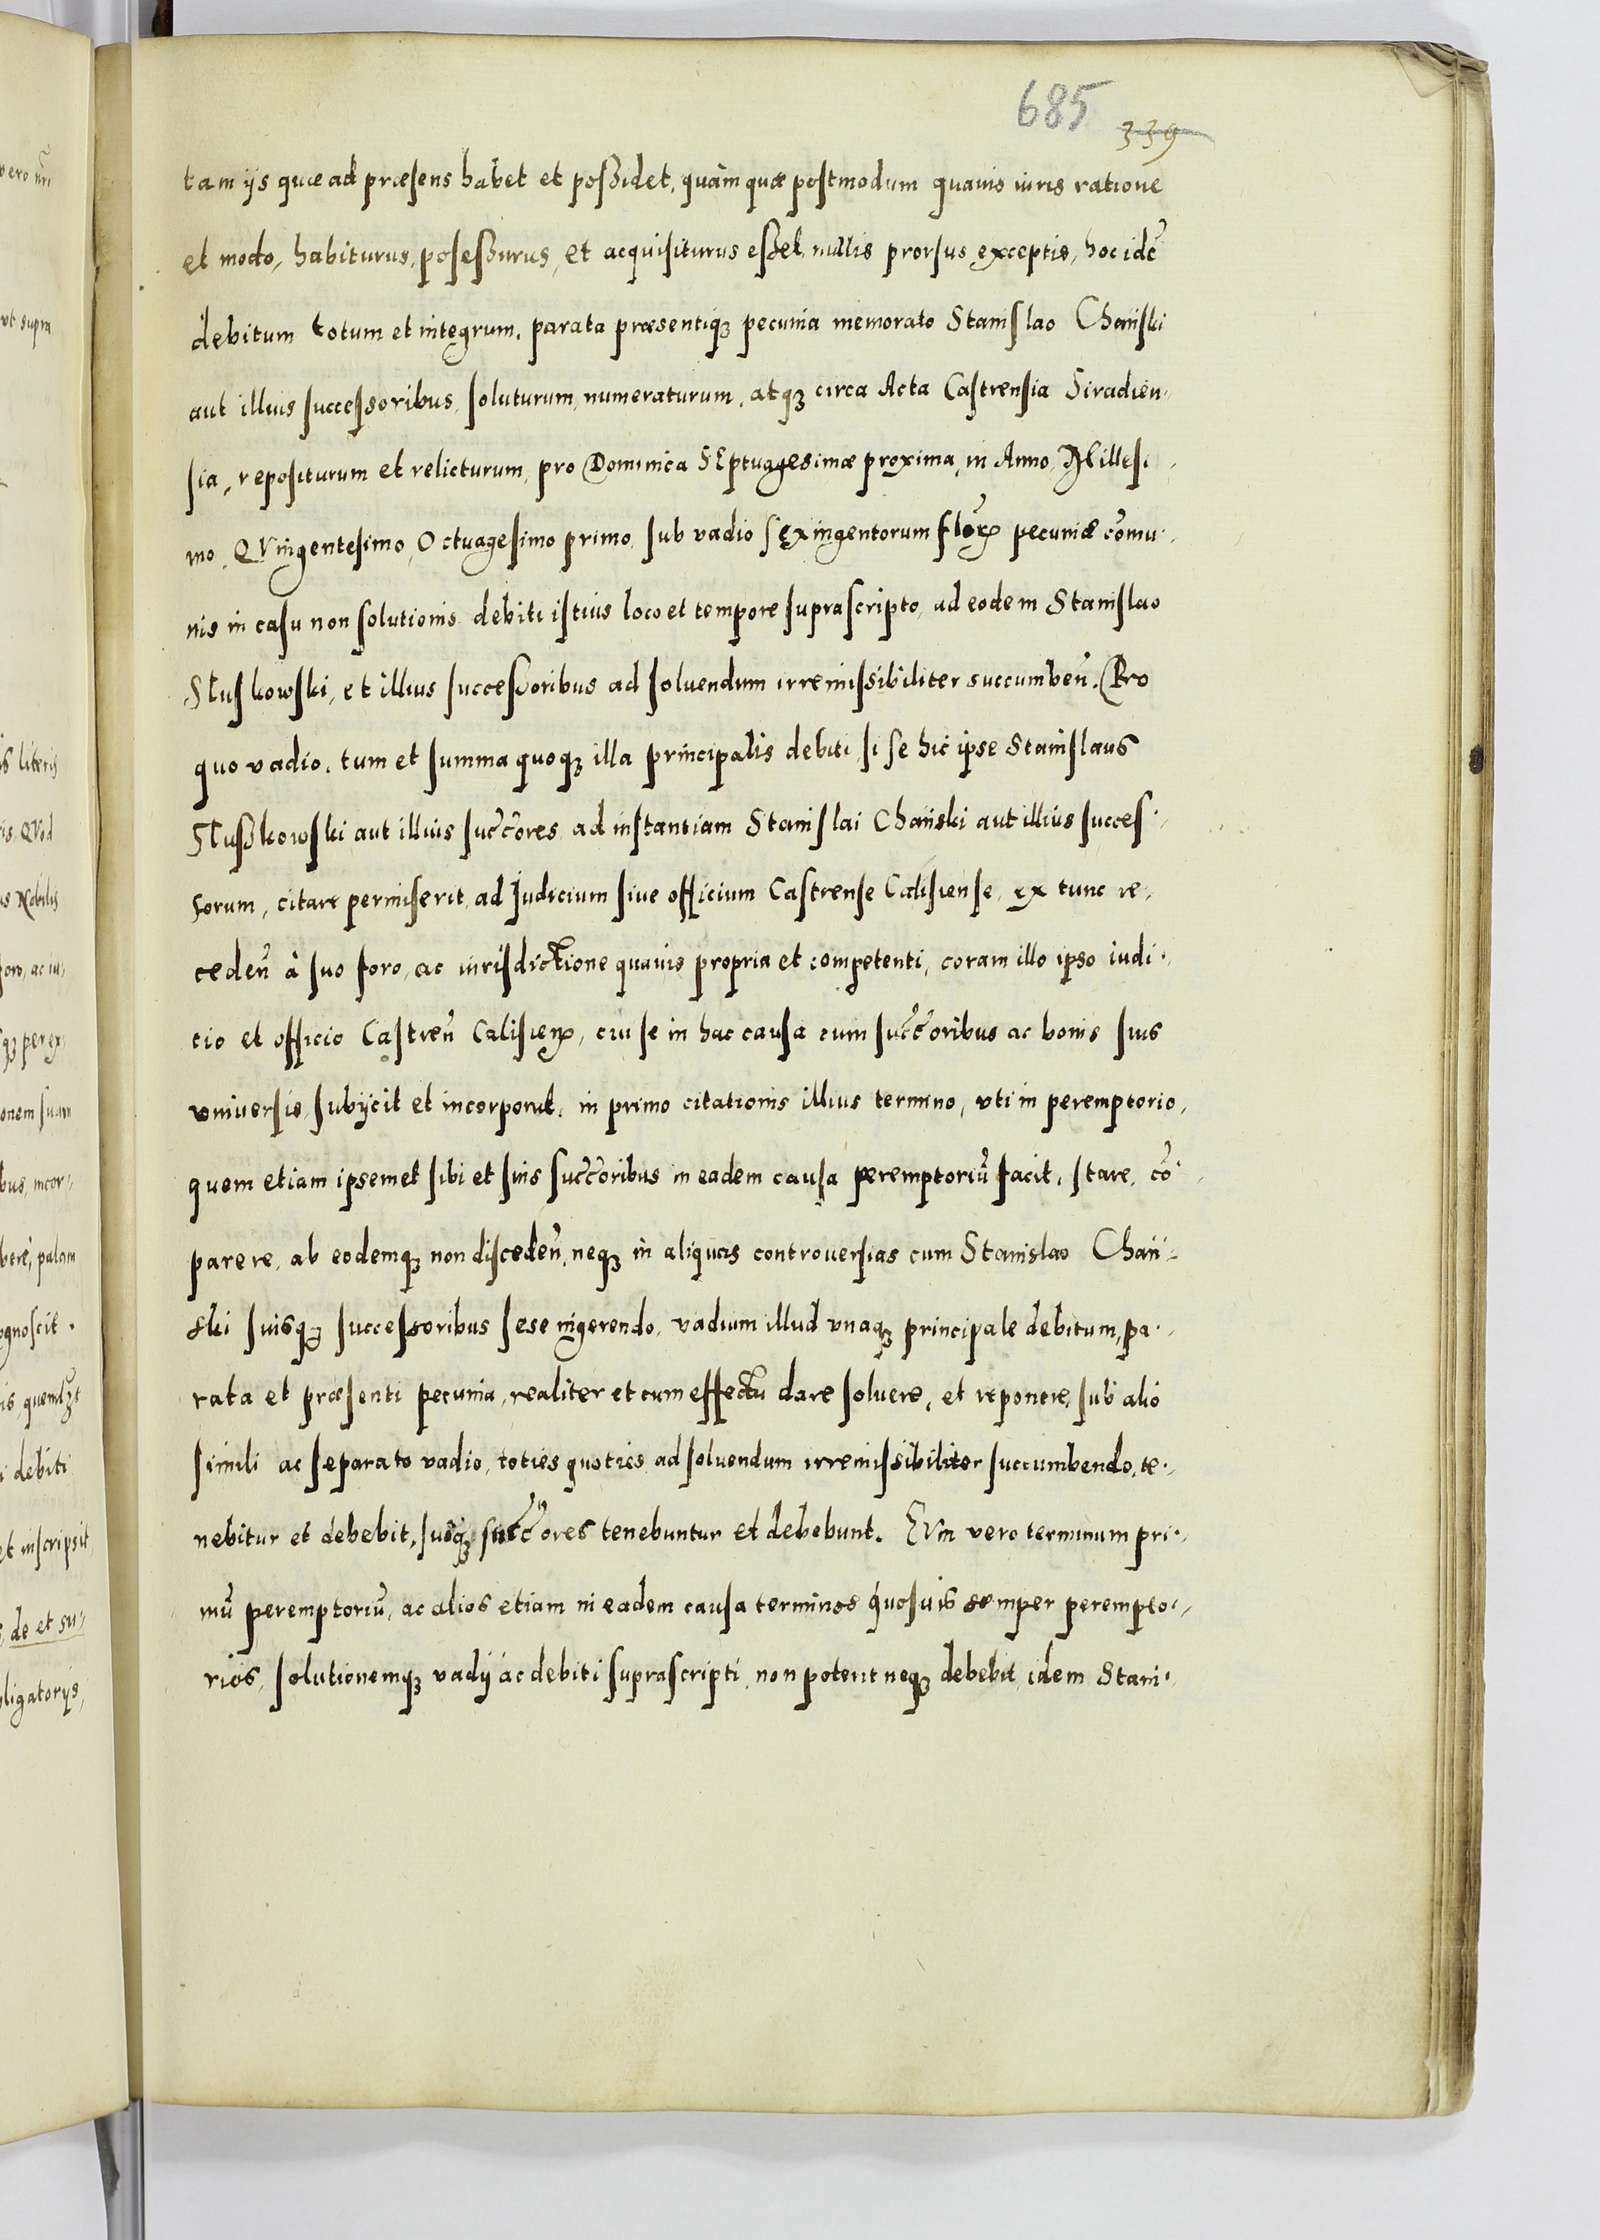 685
339
tam ijs quae ad praesens habet et poßidet, quàm quae postmodum quauis iuris ratione
et modo, habiturus, poseßurus, et acquisiturus eßet, nullis prorsus exceptis, hoc idē
debitum totum et integrum, parata praesentiqꝫ pecunia memorato Stanislao Chański
aut illius successoribus, soluturum, numeraturum, atqꝫ circa Acta Castrensia Siradien-
sia, repositurum et relicturum, pro Dominica SEptuagesimae proxima, in Anno, Millesi-
mo, QVingentesimo, Octuagesimo primo, sub vadio sexingentorum florꝝ pecuniae com̄u-
nis in casu non solutionis debiti istius loco et tempore suprascripto, ad eodem Stanislao
Sluskowski, et illius succeßoribus ad soluendum irremissibiliter succumben̄. Pro
quo vadio, tum et summa quoqꝫ illa principalis debiti, si se hic ipse Stanislaus
Slußkowski aut illius succ̄ores, ad instantiam Stanislai Chański aut illius succes-
sorum, citare permiserit, ad Judicium siue officium Castrense Calisiense, ex tunc re-
ceden̄ à suo foro, ac iurisdictione quauis propria et competenti, coram illo ipso iudi-
cio et officio Castren̄ Calisienꝝ, cui se in hac causa cum succ̄oribus ac bonis suis
vniuersis, subijcit et incorporat, in primo citationis illius termino, vti in peremptorio,
quem etiam ipsemet sibi et suis succ̄oribus in eadem causa peremptoriū facit, stare, cō-
parere, ab eodemqꝫ non disceden̄, neqꝫ in aliquas controuersias cum Stanislao Chań-
ski suisqꝫ successoribus sese ingerendo, vadium illud vnaqꝫ principale debitum, pa-
rata et praesenti pecunia, realiter et cum effectu dare soluere, et reponere, sub alio
simili ac separato vadio, toties quoties, ad soluendum irremissibiliter succumbendo, te-
nebitur et debebit, suiqꝫ succ̄ores tenebuntur et debebunt. EVm vero terminum pri-
mū peremptoriū, ac alios etiam in eadem causa terminos quosuis semper perempto-
rios, solutionemqꝫ vadij ac debiti suprascripti, non poterit neqꝫ debebit, idem Stani-